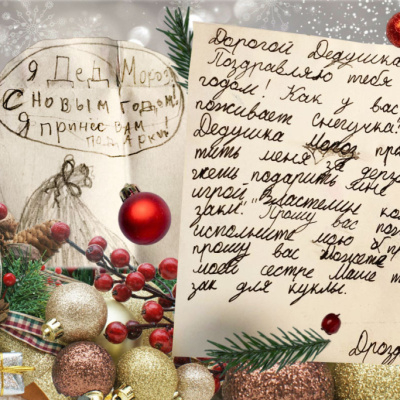 Я Дед Мороз
С новым годом!
Я принес вам
подарки!
Дорогой Дедушка
Поздравляю тебя
годом! Как у вас
поживает снегурка?
Дедушка Мороз
тить меня за
подарить мне
игрой "Властелин
заки". Прошу вас
исполните мою
прошу вас
моей сестре Маше
зак для куклы.
Дрозд